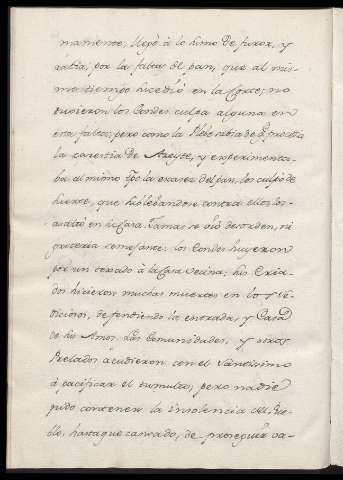 mamente, llegò à lo sumo de furor, y
rabia, por la falta de pan, que al mis-
mo tiempo sucediò en la Corte; no
tuvieron los Condes culpa alguna en
esta falta; pero como la Plebe sabia de q.e procedia
la carestia de Azeyte, y experimenta-
ba al mismo tpo la escasez del pan, los culpò de
suerte, que sublebandose contra ellos los
asaltò en su Casa. Jamas se viò desorden, ni
groceria semejante: los Condes huyeron
por un texado à la Casa vecina; sus Cria-
dos hicieron muchas muertes en los se-
diciosos, defendiendo la entrada, y Casa
de sus Amos. Las Comunidades, y otros
Prelados acudieron con el Santisimo
à pacificar el tumulto, pero nadie
pudo contener la insolencia del Pue-
blo, hasta que cansado, de proseguir va-